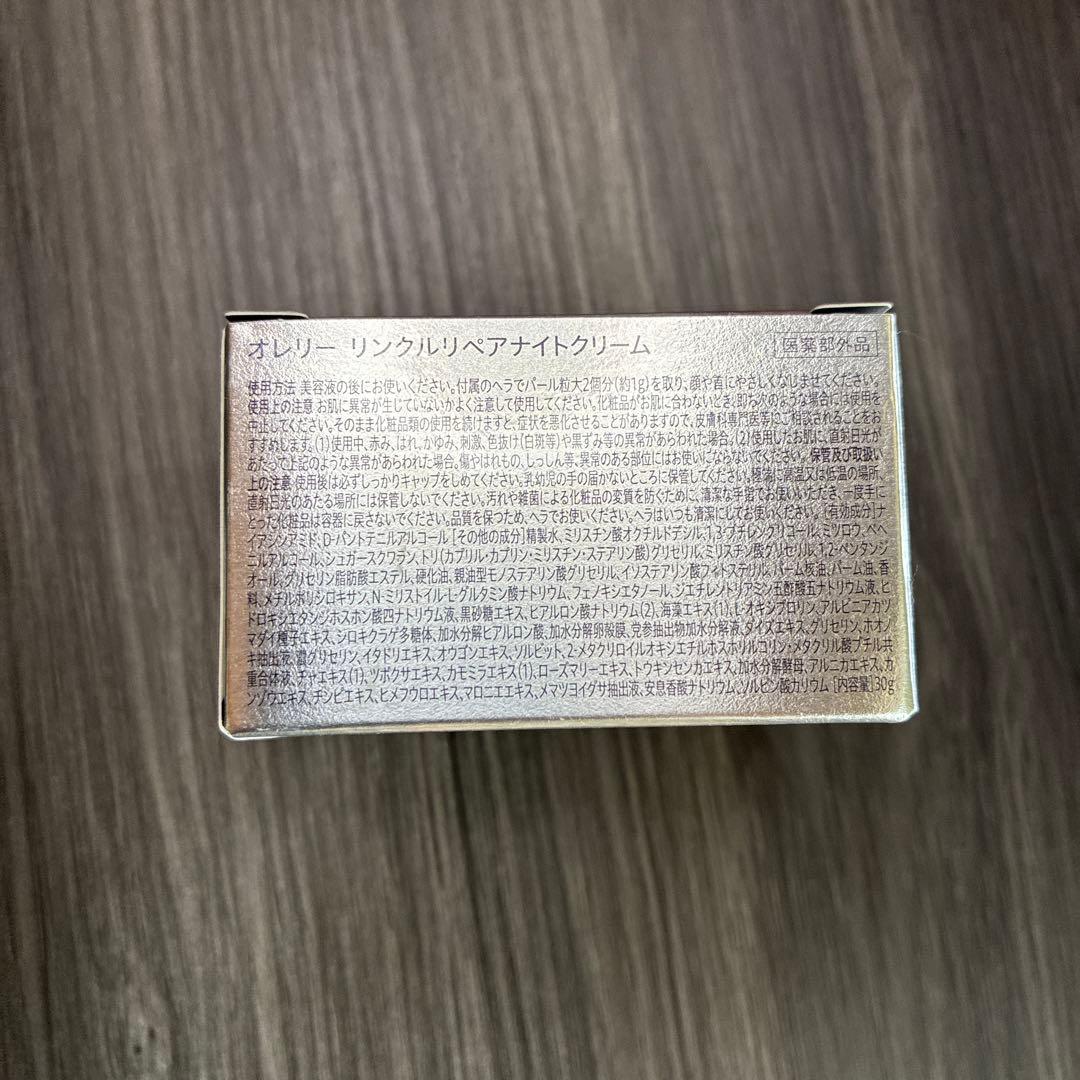 オレリー リンクルリペアナイトクリーム
医薬部外品
使用方法 美容液の後にお使いください。付属のヘラでパール粒大2個分(約1g)を取り、顔や首にやさしくなじませてください。
使用上の注意 お肌に異常が生じていないかよく注意して使用してください。化粧品がお肌に合わないとき、即ち次のような場合には使用を
中止してください。そのまま化粧品類の使用を続けますと、症状を悪化させることがありますので、皮膚科専門医等にご相談されることをお
すすめします。(1)使用中、赤み、はれ、かゆみ、刺激、色抜け(白斑等)や黒ずみ等の異常があらわれた場合。(2)使用したお肌に、直射日光が
あたって上記のような異常があらわれた場合。傷やはれもの、しっしん等、異常のある部位にはお使いにならないでください。保管及び取扱い
上の注意 使用後は必ずしっかりキャップをしめてください。乳幼児の手の届かないところに保管してください。極端に高温又は低温の場所、
直射日光のあたる場所には保管しないでください。汚れや雑菌による化粧品の変質を防ぐために、清潔な手指でお使いいただき、一度手に
とった化粧品は容器に戻さないでください。品質を保つため、ヘラでお使いください。ヘラはいつも清潔にしてお使いください。[有効成分]ナ
イアシンアミド、D-パントテニルアルコール [その他の成分]精製水、ミリスチン酸オクチルドデシル、1,3-ブチレングリコール、ミツロウ、ベヘ
ニルアルコール、シュガースクワラン、トリ(カプリル・カプリン・ミリスチン・ステアリン酸)グリセリル、ミリスチン酸グリセリル、1,2-ペンタンジ
オール、グリセリン脂肪酸エステル、硬化油、親油型モノステアリン酸グリセリル、イソステアリン酸フィトステリル、パーム核油、パーム油、香
料、メチルポリシロキサン、N-ミリストイル-L-グルタミン酸ナトリウム、フェノキシエタノール、ジエチレントリアミン五酢酸五ナトリウム液、ヒ
ドロキシエタンジホスホン酸四ナトリウム液、黒砂糖エキス、ヒアルロン酸ナトリウム(2)、海藻エキス(1)、L-オキシプロリン、アルピニアカツ
マダイ種子エキス、シロキクラゲ多糖体、加水分解ヒアルロン酸、加水分解卵殻膜、党参抽出物加水分解液、ダイズエキス、グリセリン、ホオノ
キ抽出液、濃グリセリン、イタドリエキス、オウゴンエキス、ソルビット、2-メタクリロイルオキシエチルホスホリルコリン・メタクリル酸ブチル共
重合体液、チャエキス(1)、ツボクサエキス、カモミラエキス(1)、ローズマリーエキス、トウキンセンカエキス、加水分解酵母、アルニカエキス、カ
ンゾウエキス、チンピエキス、ヒメフウロエキス、マロニエエキス、メマツヨイグサ抽出液、安息香酸ナトリウム、ソルビン酸カリウム [内容量]30g